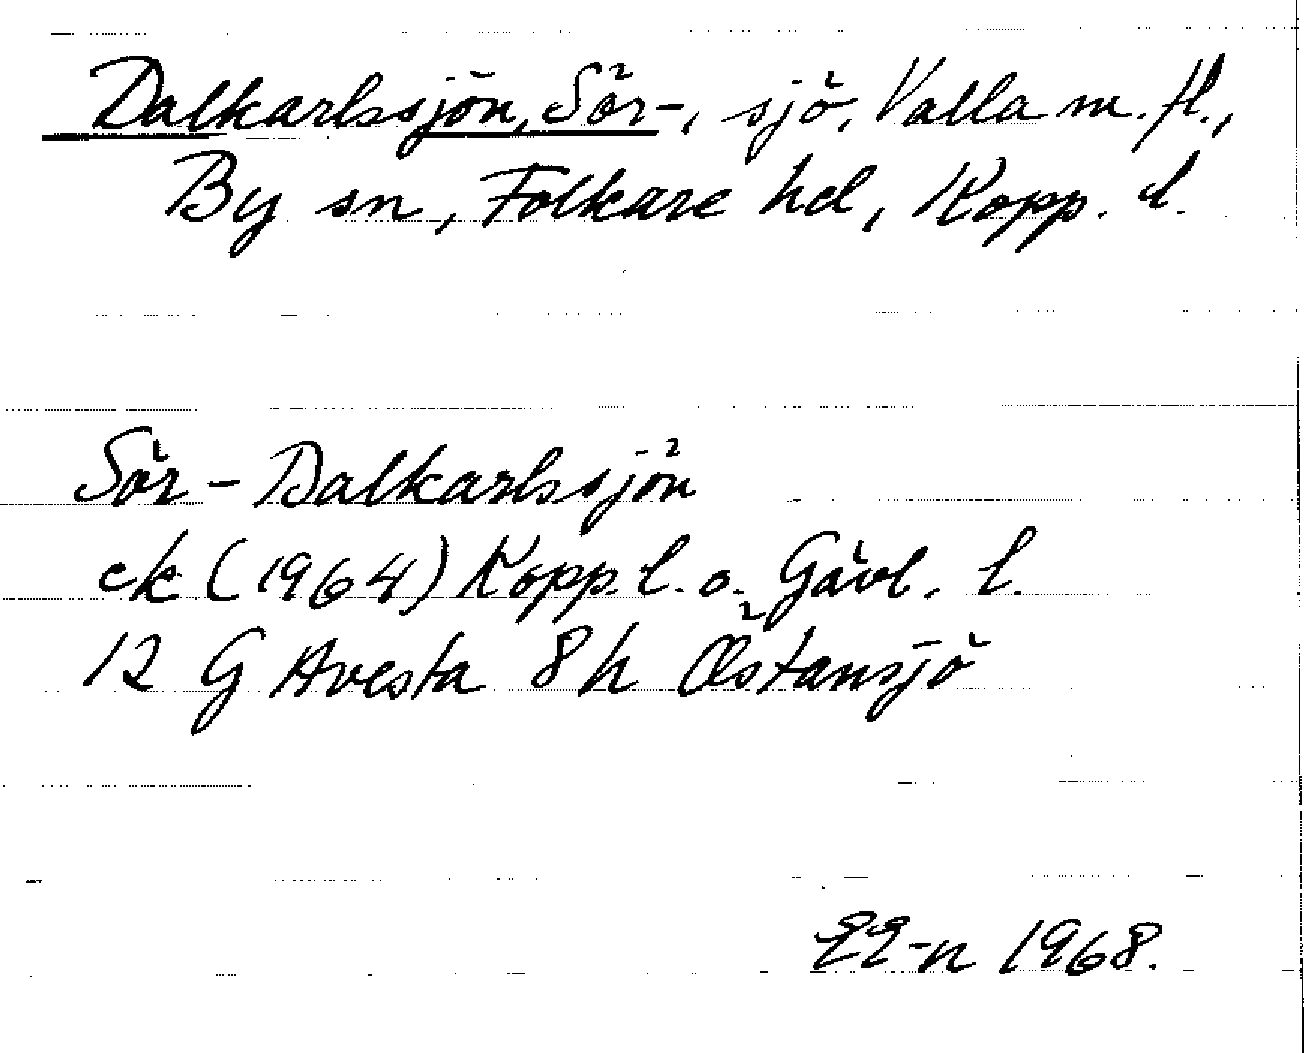 Dalkarlssjön, Sör-, sjö, Valla m.fl.,
By sn, Folkare hd, Kopp. l.
Sör-Dalkarlssjön
ek (1964) Kopp.l. o. Gävl. l.
12 G Avesta 8h Östansjö
EE-n 1968.